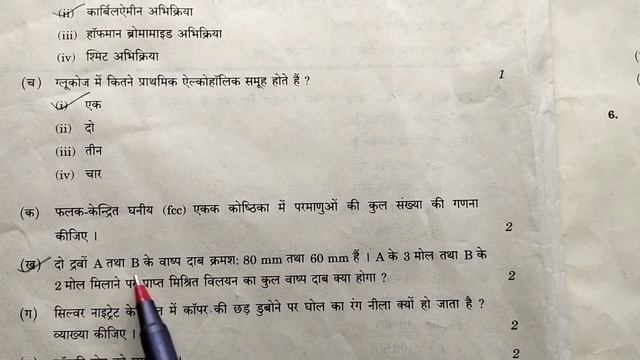 (ii) कार्बिलऐमीन अभिक्रिया
(iii) हॉफमान ब्रोमामाइड अभिक्रिया
(iv) श्मिट अभिक्रिया
(च) ग्लूकोज में कितने प्राथमिक ऐल्कोहॉलिक समूह होते हैं ? 1
(i) एक
(ii) दो
(iii) तीन
(iv) चार
6.
(क) फलक-केन्द्रित घनीय (fcc) एकक कोष्ठिका में परमाणुओं की कुल संख्या की गणना
कीजिए । 2
(ख) दो द्रवों A तथा B के वाष्प दाब क्रमश: 80 mm तथा 60 mm हैं । A के 3 मोल तथा B के
2 मोल मिलाने पर प्राप्त मिश्रित विलयन का कुल वाष्प दाब क्या होगा ? 2
(ग) सिल्वर नाइट्रेट के में कॉपर की छड़ डुबोने पर घोल का रंग नीला क्यों हो जाता है ?
व्याख्या कीजिए । 2
2